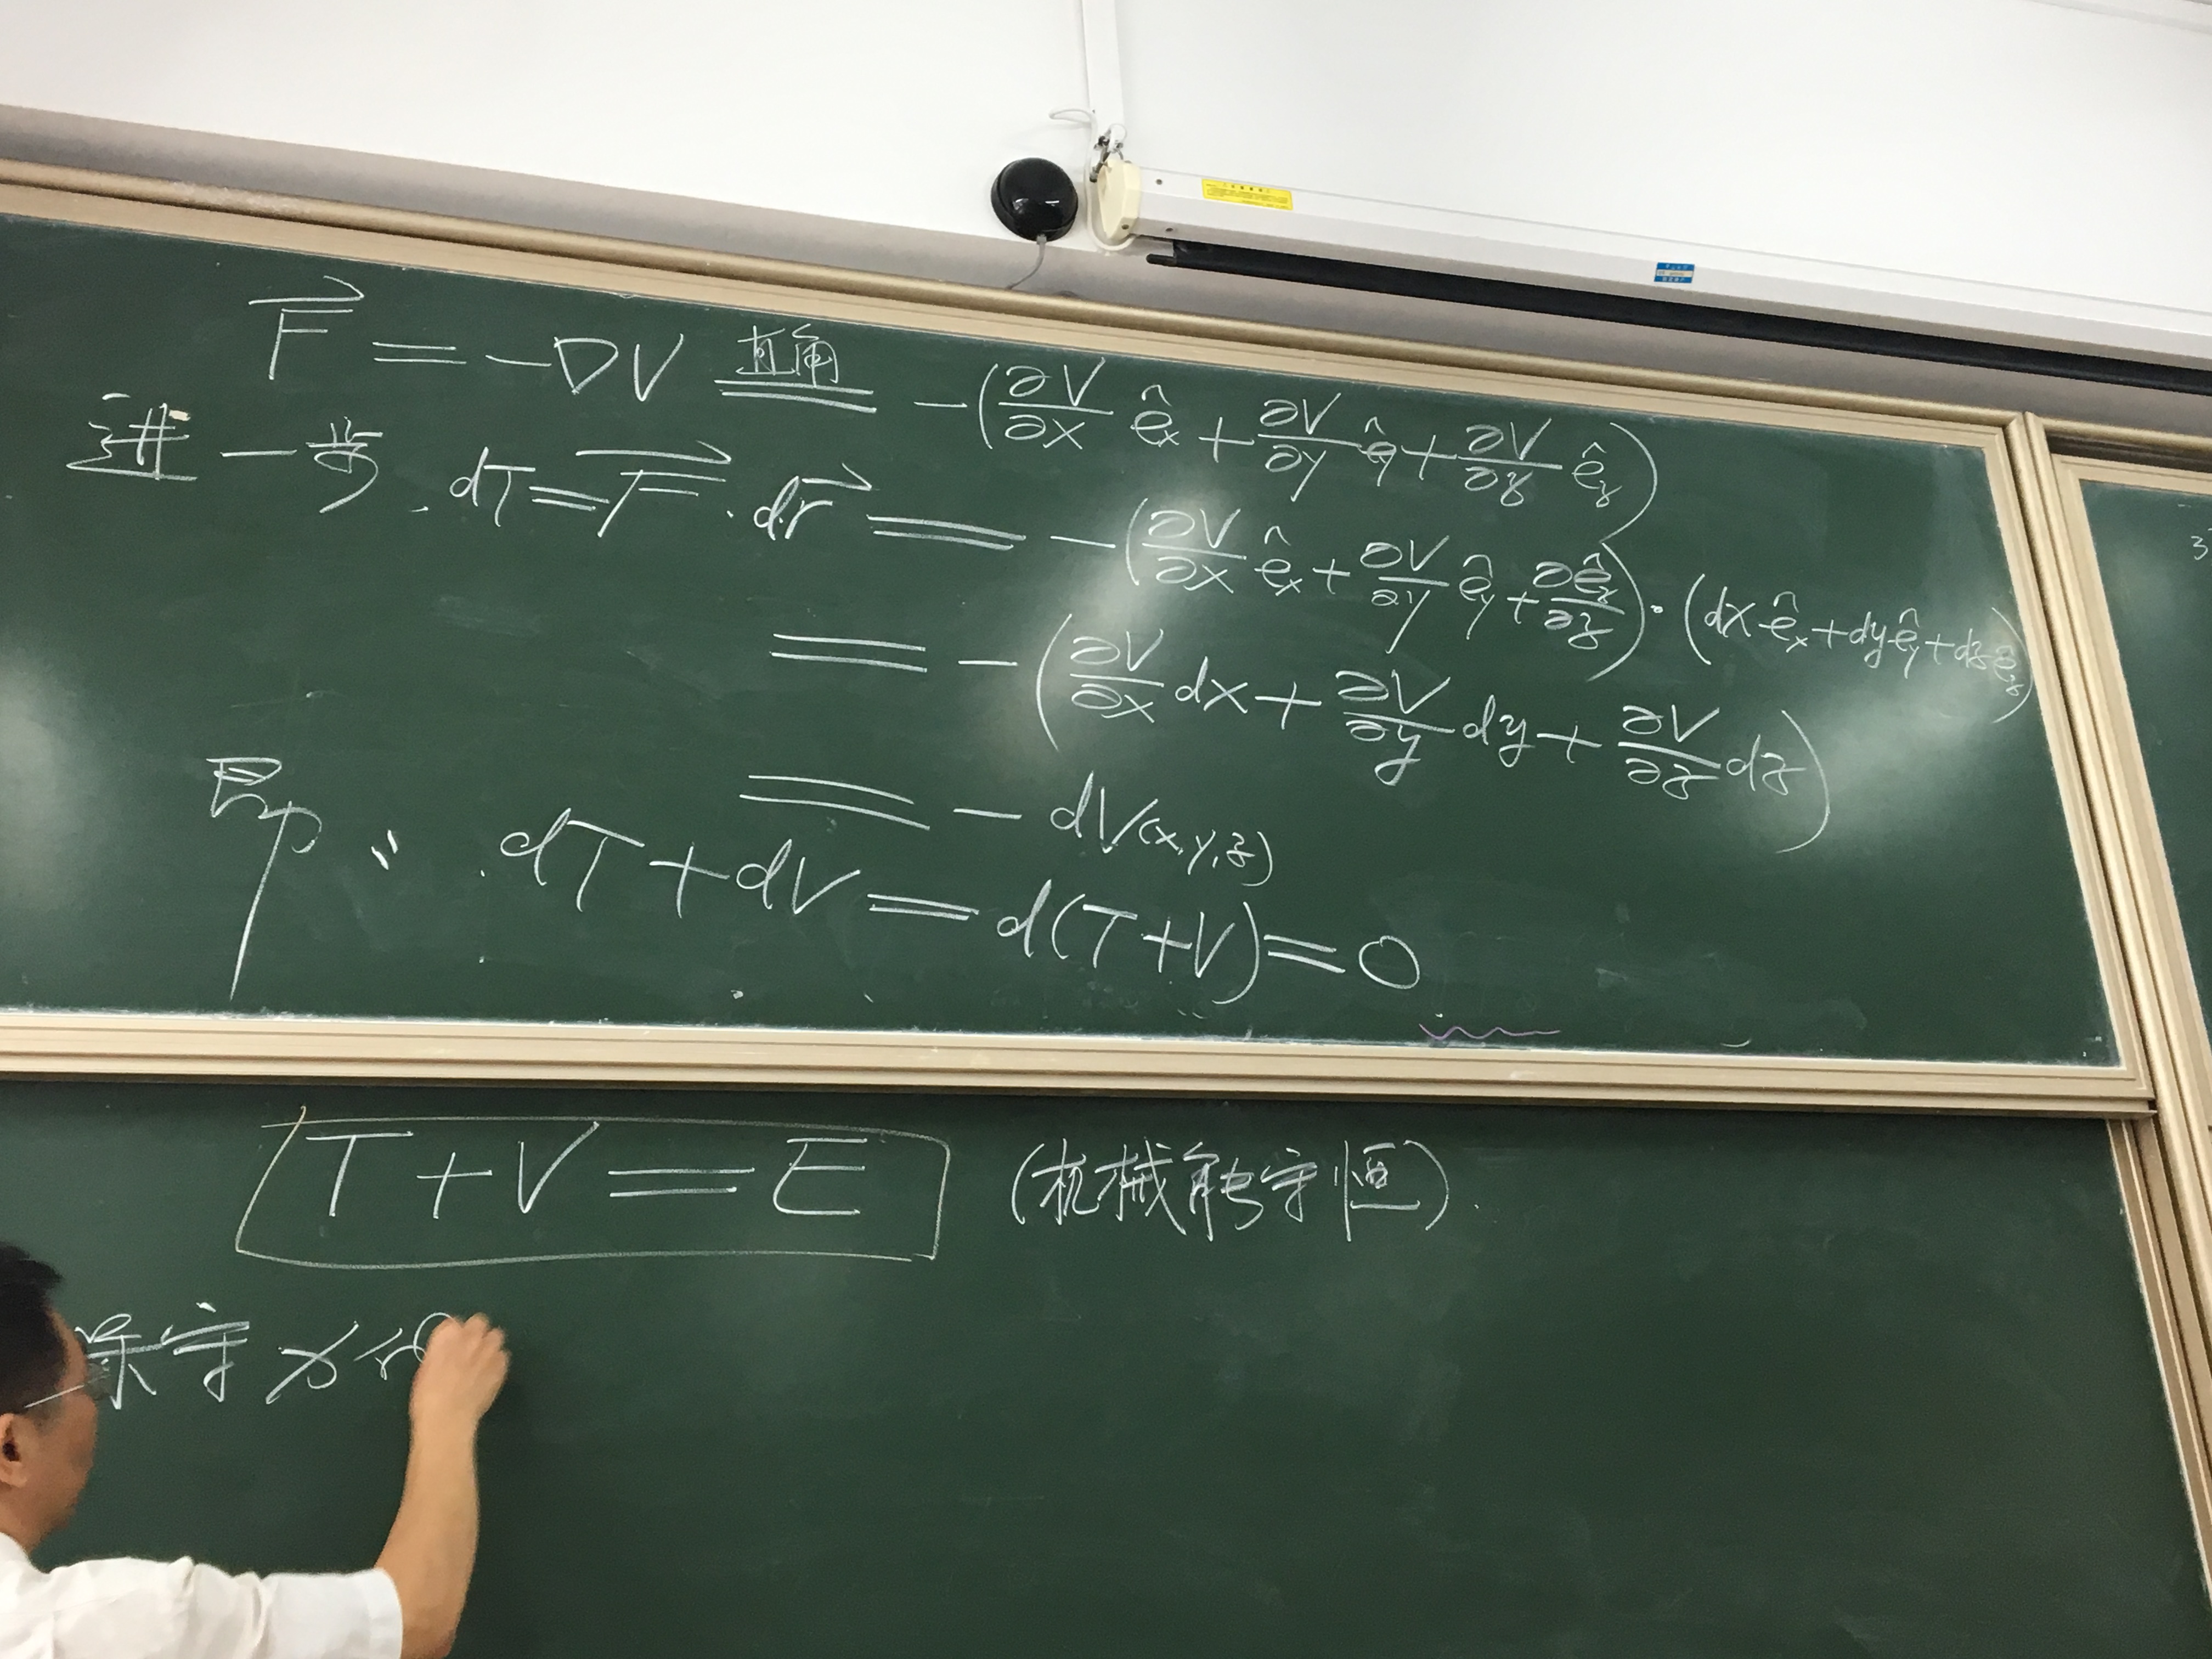 F⃗ = -∇V 直角 -(∂V/∂x ê_x + ∂V/∂y ê_y + ∂V/∂z ê_z)
进一步, dT = F⃗ · dr⃗ = -(∂V/∂x ê_x + ∂V/∂y ê_y + ∂ê_z/∂z) · (dx ê_x + dy ê_y + dz ê_z)
= -(∂V/∂x dx + ∂V/∂y dy + ∂V/∂z dz)
= -dV(x,y,z)
即: dT + dV = d(T+V) = 0
T + V = E (机械能守恒).
保守力
3